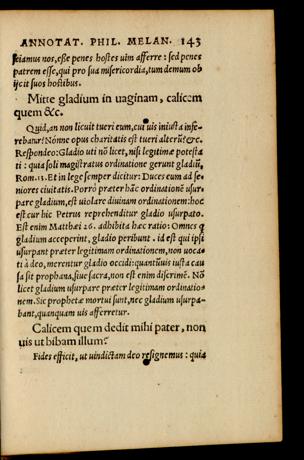 ANNOTAT. PHIL. MELAN. 143
sciamus nos, esse penes hostes uim afferre : sed penes
patrem esse, qui pro sua misericordia, tum demum ob
ijcit suos hostibus.
Mitte gladium in uaginam, calicem
quem &c.
Quid, an non licuit tueri eum, cui uis iniusta infe-
rebatur? Nónne opus charitatis est tueri alterũ? &c.
Respondeo: Gladio uti nō licet, nisi legitimæ potesta
ti : quia soli magistratus ordinatione gerunt gladiũ,
Rom. 13. Et in lege semper dicitur: Duces eum ad se-
niores ciuitatis. Porrò præter hãc ordinationē usur-
pare gladium, est uiolare diuinam ordinationem: hoc
est cur hic Petrus reprehenditur gladio usurpato.
Est enim Matthæi 26. adhibita hæc ratio: Omnes q
gladium acceperint, gladio peribunt . id est qui ipsi
usurpant præter legitimam ordinationem, non uoca-
ti à deo, merentur gladio occidi: quantũuis iusta cau
sa sit prophana, siue sacra, non est enim discrimē. Nō
licet gladium usurpare præter legitimam ordinatio-
nem. Sic prophetæ mortui sunt, nec gladium usurpa-
bant, quanquam uis afferretur.
Calicem quem dedit mihi pater, non
uis ut bibam illum?
Fides efficit, ut uindictam deo resignemus : quia